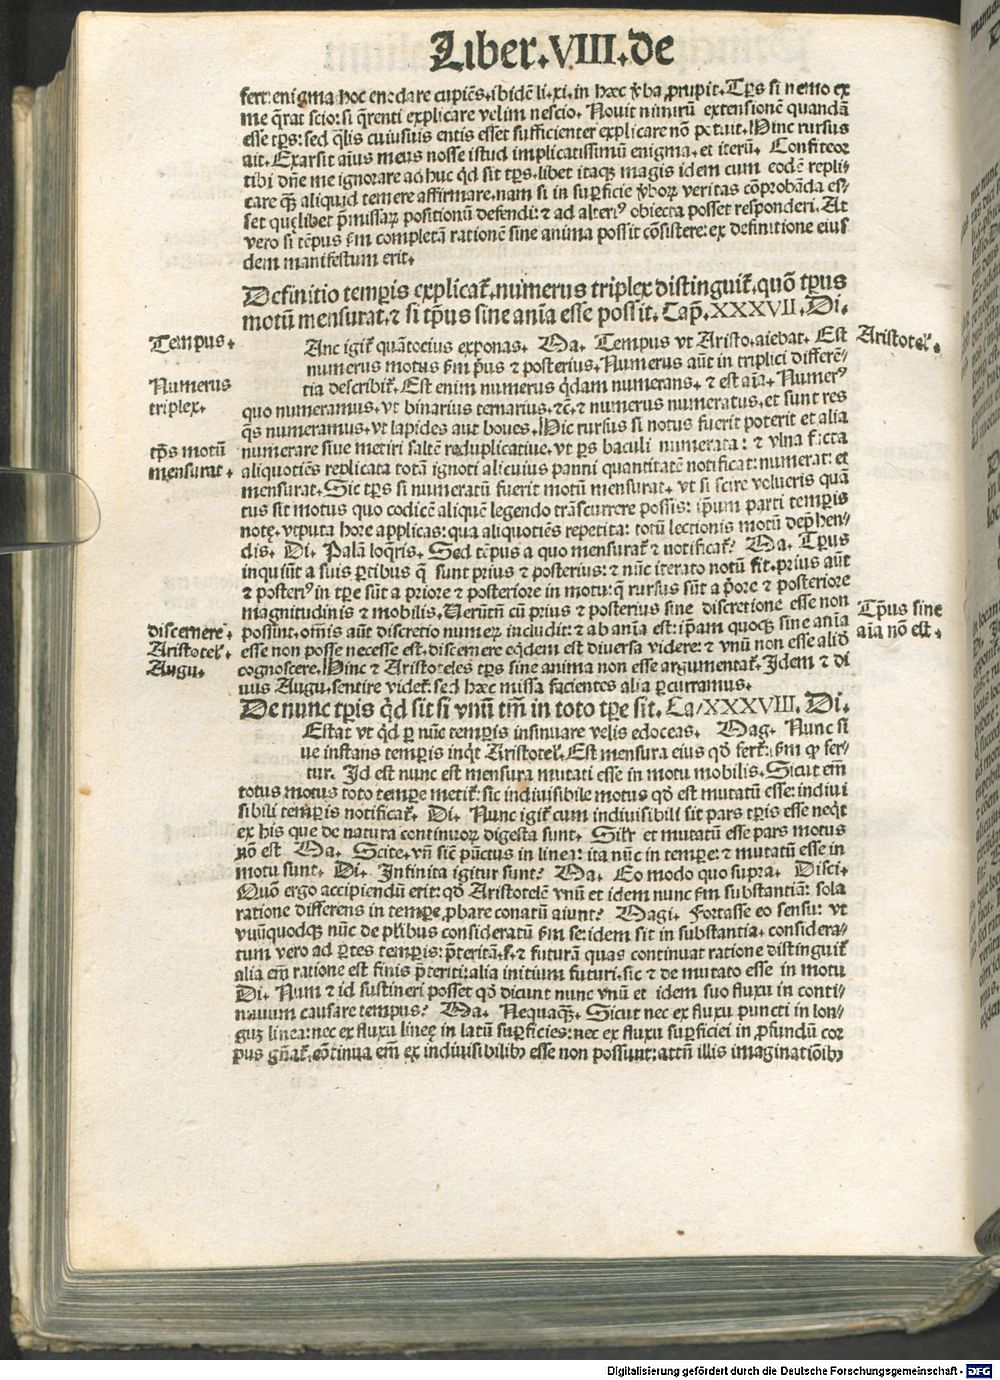 Liber.VIII.de
fert: enigma hoc enodare cupiēs. ibidē li. xi. in hæc v̄ba ꝓrupit. Tp̄s si nemo ex
me q̄rat scio: si q̄renti explicare velim nescio. Nouit nimirū extensionē quandā
esse tp̄s: sed q̄lis cuiusuis entis esset sufficienter explicare nō potuit. Hinc rursus
ait. Exarsit aīus meus nosse istud implicatissimū enigma. et iterū. Confiteor
tibi dn̄e me ignorare ad huc qd̄ sit tp̄s. libet itaqꝫ magis idem cum eodē repli⸗
care qꝫ aliquid temere affirmare. nam si in suꝑficie v̄boꝝ veritas cōprobāda es⸗
set quęlibet p̄missaꝝ positionū defendi: ⁊ ad alteriꝰ obiecta posset responderi. At
vero si tēpus ẜm completā rationē sine anima possit cōsistere: ex definitione eius
dem manifestum erit.
Definitio temꝑis explicat̄. numerus triplex distinguit̄. quō tp̄us
motū mensurat. ⁊ si tp̄us sine anīa esse possit. Cap̄. XXXVII. Di.
Tempus.
Anc igit̄ quātocius exponas. Ma. Tempus vt Aristo. aiebat. Est
Aristotel̄.
numerus motus ẜm p̄us ⁊ posterius. Numerus aūt in triplici differē⸗
Numerus
triplex.
tia describit̄. Est enim numerus qd̄am numerans. ⁊ est aīa. Numerꝰ
quo numeramus. vt binarius ternarius. ⁊c̄. ⁊ numerus numeratus. et sunt res
q̄s numeramus. vt lapides aut boues. Hic rursus si notus fuerit poterit et alia
tp̄s motū
mensurat.
numerare siue metiri saltē reduplicatiue. vt ꝑs baculi numerata: ⁊ vlna facta
aliquotiēs replicata totā ignoti alicuius panni quantitatē notificat: numerat: et
mensurat. Sic tp̄s si numeratū fuerit motū mensurat. vt si scire volueris quā
tus sit motus quo codicē aliquē legendo trāscurrere possis: ip̄um parti temꝑis
notę. vtputa hore applicas: qua aliquotiēs repetita: totū lectionis motū dep̄hen⸗
dis. Di. Palā loq̄ris. Sed tēpus a quo mensurat̄ ⁊ notificat̄? Ma. Tp̄us
inquiūt a suis ꝑtibus q̄ sunt prius ⁊ posterius: ⁊ nūc iterato notū fit. prius aūt
⁊ posteriꝰ in tꝑe sūt a priore ⁊ posteriore in motu: q̄ rursus sūt a p̄ore ⁊ posteriore
magnitudinis ⁊ mobilis. Uerūtn̄ cū prius ⁊ posterius sine discretione esse non
Tp̄us sine
aīa nō est.
discernere.
Aristotel̄.
Augu.
possint. om̄is aūt discretio numeꝝ includit: ⁊ ab anīa est: ip̄am quoqꝫ sine anīa
esse non posse necesse est. discernere eq̄dem est diuersa videre: ⁊ vnū non esse aliḋ
cognoscere. Hinc ⁊ Aristoteles tp̄s sine anima non esse argumentat̄. Idem ⁊ di
uus Augu. sentire videt̄: sed hæc missa facientes alia ꝑcurramus.
De nunc tꝑis qd̄ sit si vnū tm̄ in toto tꝑe sit. Ca/XXXVIII. Di.
Estat vt qd̄ ꝑ nūc temꝑis insinuare velis edoceas. Mag. Nunc si
ue instans temꝑis inq̇t Aristotel̄. Est mensura eius qd̄ fert̄: ẜm ꝙ fer⸗
tur. Id est nunc est mensura mutati esse in motu mobilis. Sicut em̄
totus motus toto tempe metit̄: sic indiuisibile motus qd̄ est mutatū esse: indiui
sibili temꝑis notificat̄. Di. Nunc igit̄ cum indiuisibili sit pars tꝑis esse neq̇t
ex his que de natura continuoꝝ digesta sunt. Sil̄r et mutatū esse pars motus
nō est Ma. Scite. vn̄ sicē pūctus in linea: ita nūc in tempe: ⁊ mutatū esse in
motu sunt. Di. Infinita igitur sunt? Ma. Eo modo quo supra. Disci.
Quō ergo accipiendū erit: qd̄ Aristotelē vnū et idem nunc ẜm substantiā: sola
ratione differens in tempe ꝓbare conatū aiunt? Magi. Fortasse eo sensu: vt
vnūquodqꝫ nūc de pl̄ibus consideratū ẜm se: idem sit in substantia. considera⸗
tum vero ad ꝑtes temꝑis: p̄teritā. s. ⁊ futurā quas continuat ratione distinguit̄
alia em̄ ratione est finis p̄teriti: alia initium futuri. sic ⁊ de mutato esse in motu
Di. Num ⁊ id sustineri posset qd̄ dicunt nunc vnū et idem suo fluxu in conti⸗
nuum causare tempus? Ma. Nequaqꝫ. Sicut nec ex fluxu puncti in lon⸗
guꝫ linea: nec ex fluxu lineę in latū suꝑficies: nec ex fluxu suꝑficiei in ꝓfundū cor
pus gn̄at̄. cōtinua em̄ ex indiuisibilibꝫ esse non possunt: attn̄ illis imaginatiōibꝫ
Digitalisierung gefördert durch die Deutsche Forschungsgemeinschaft - DFG